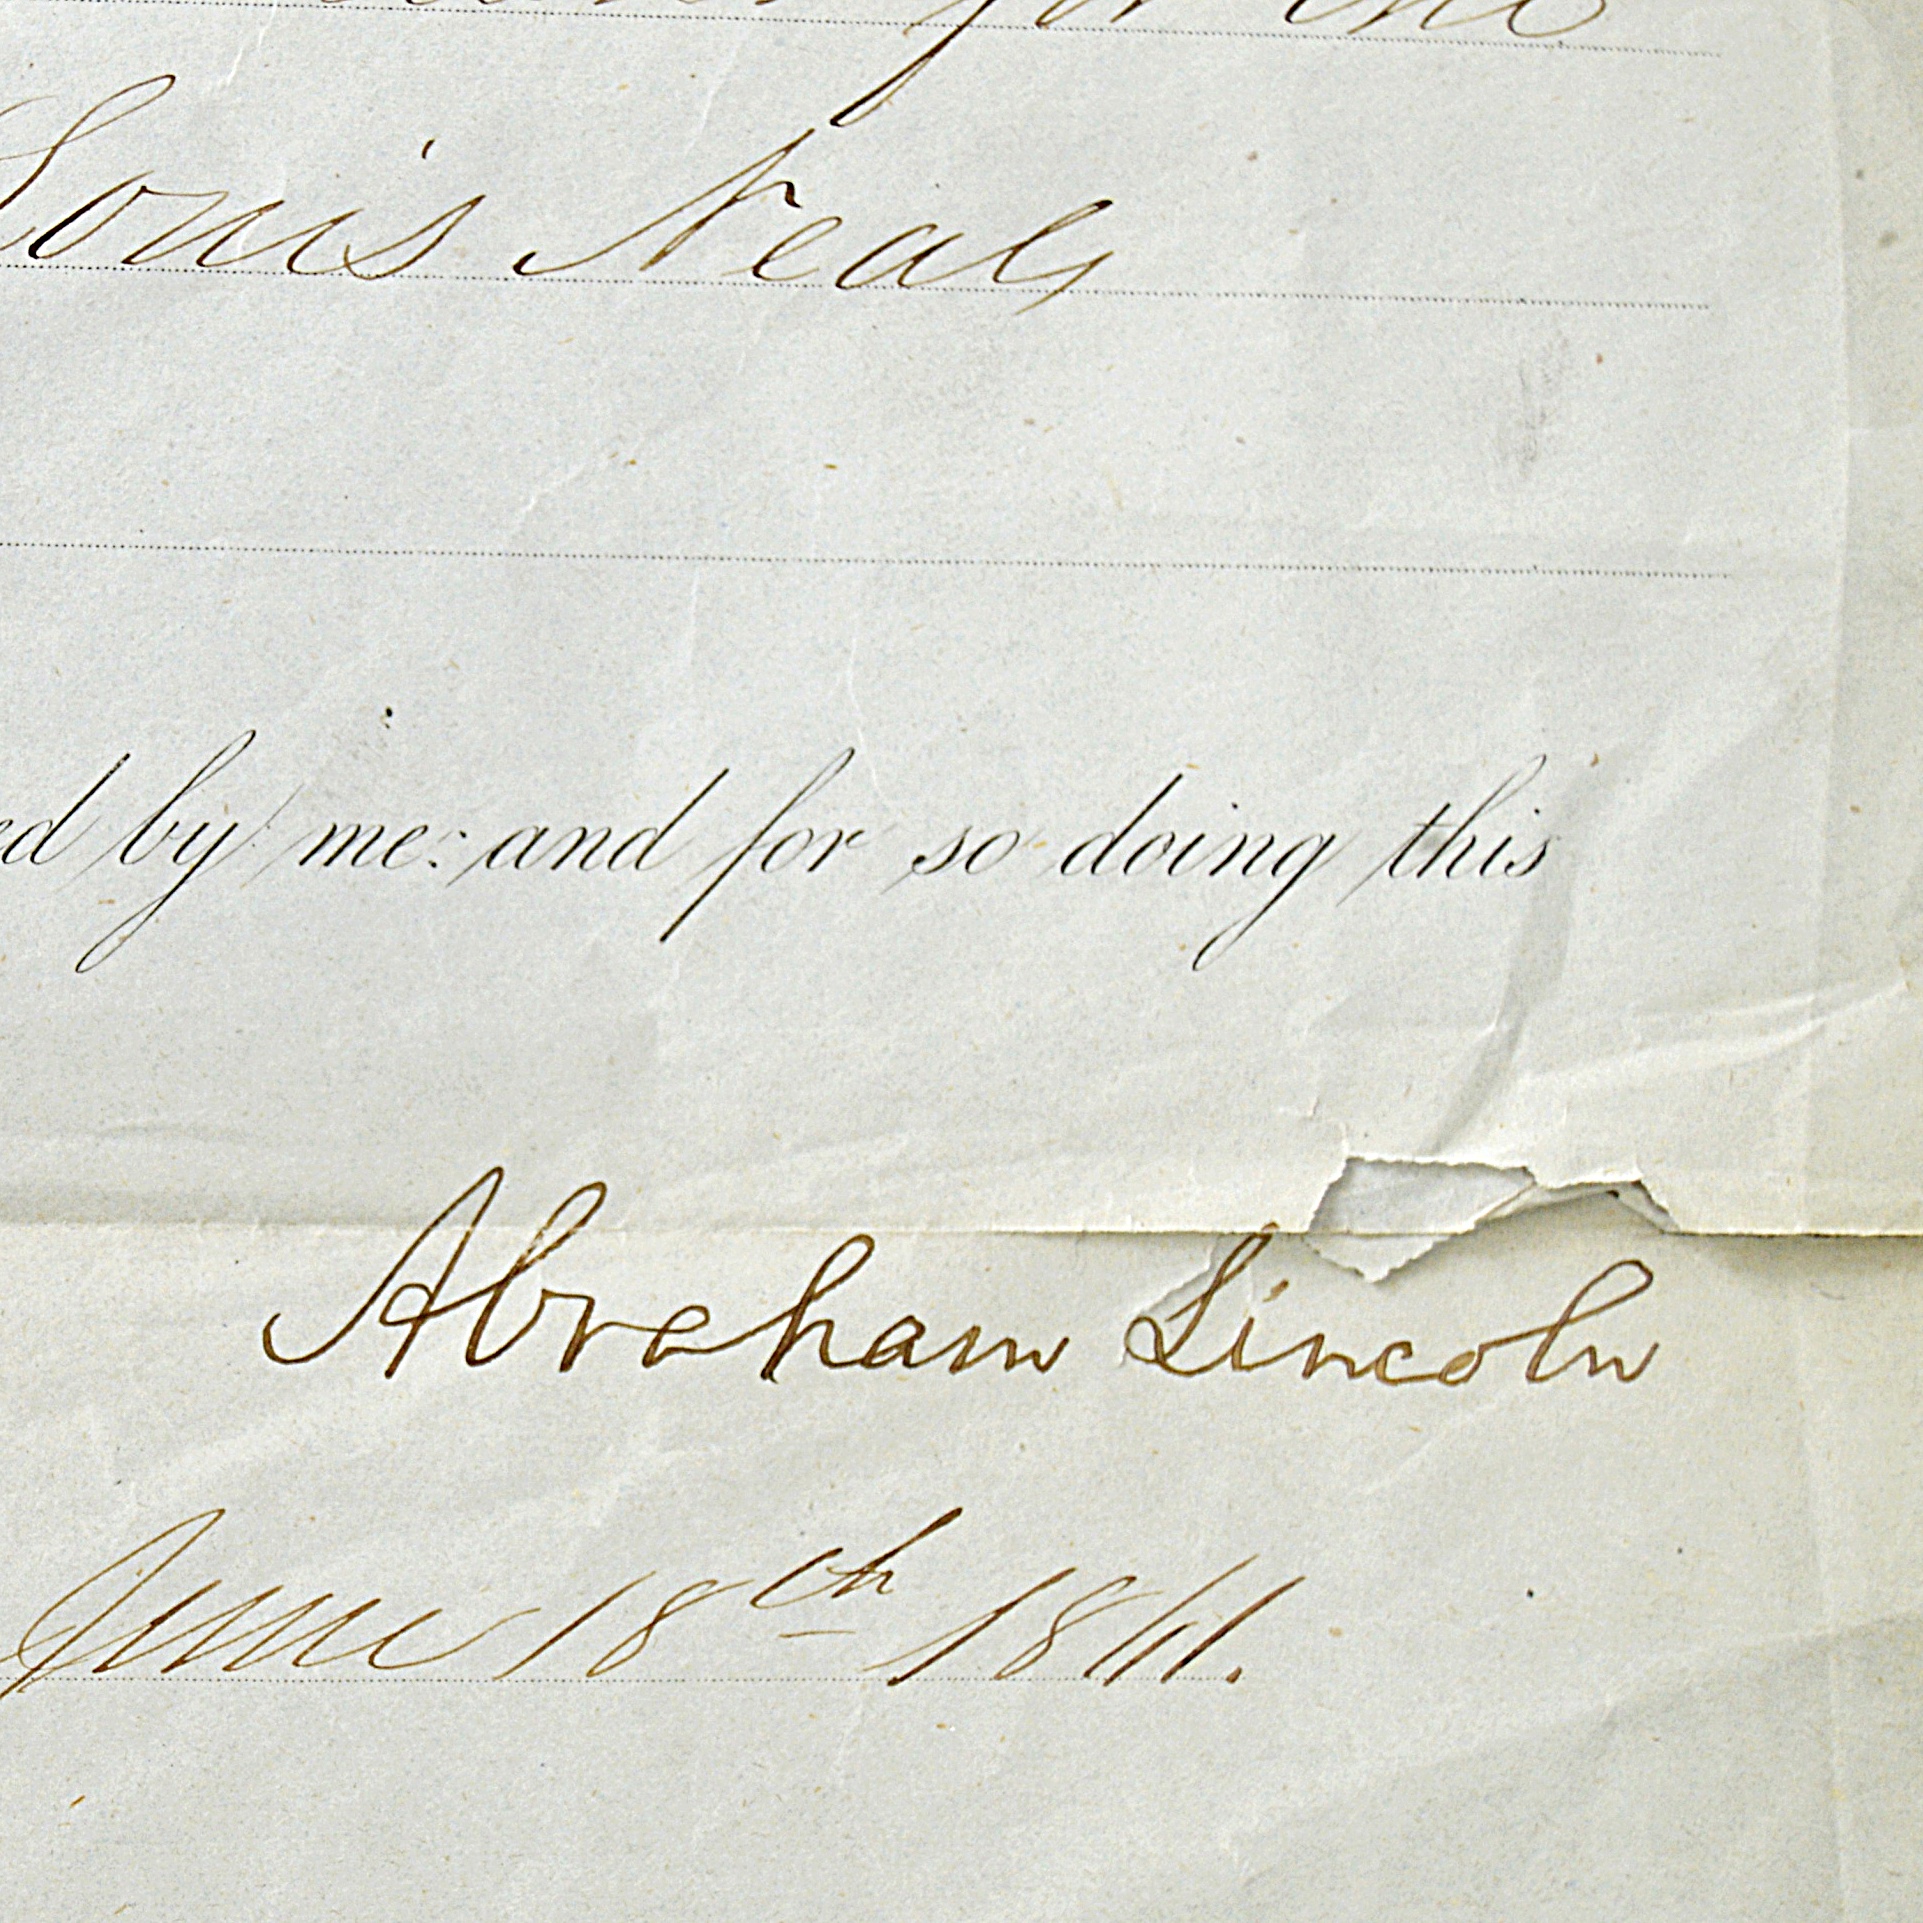 for the
Louis Neal,
ed by me: and for so doing this
Abraham Lincoln
June 18th 1861.